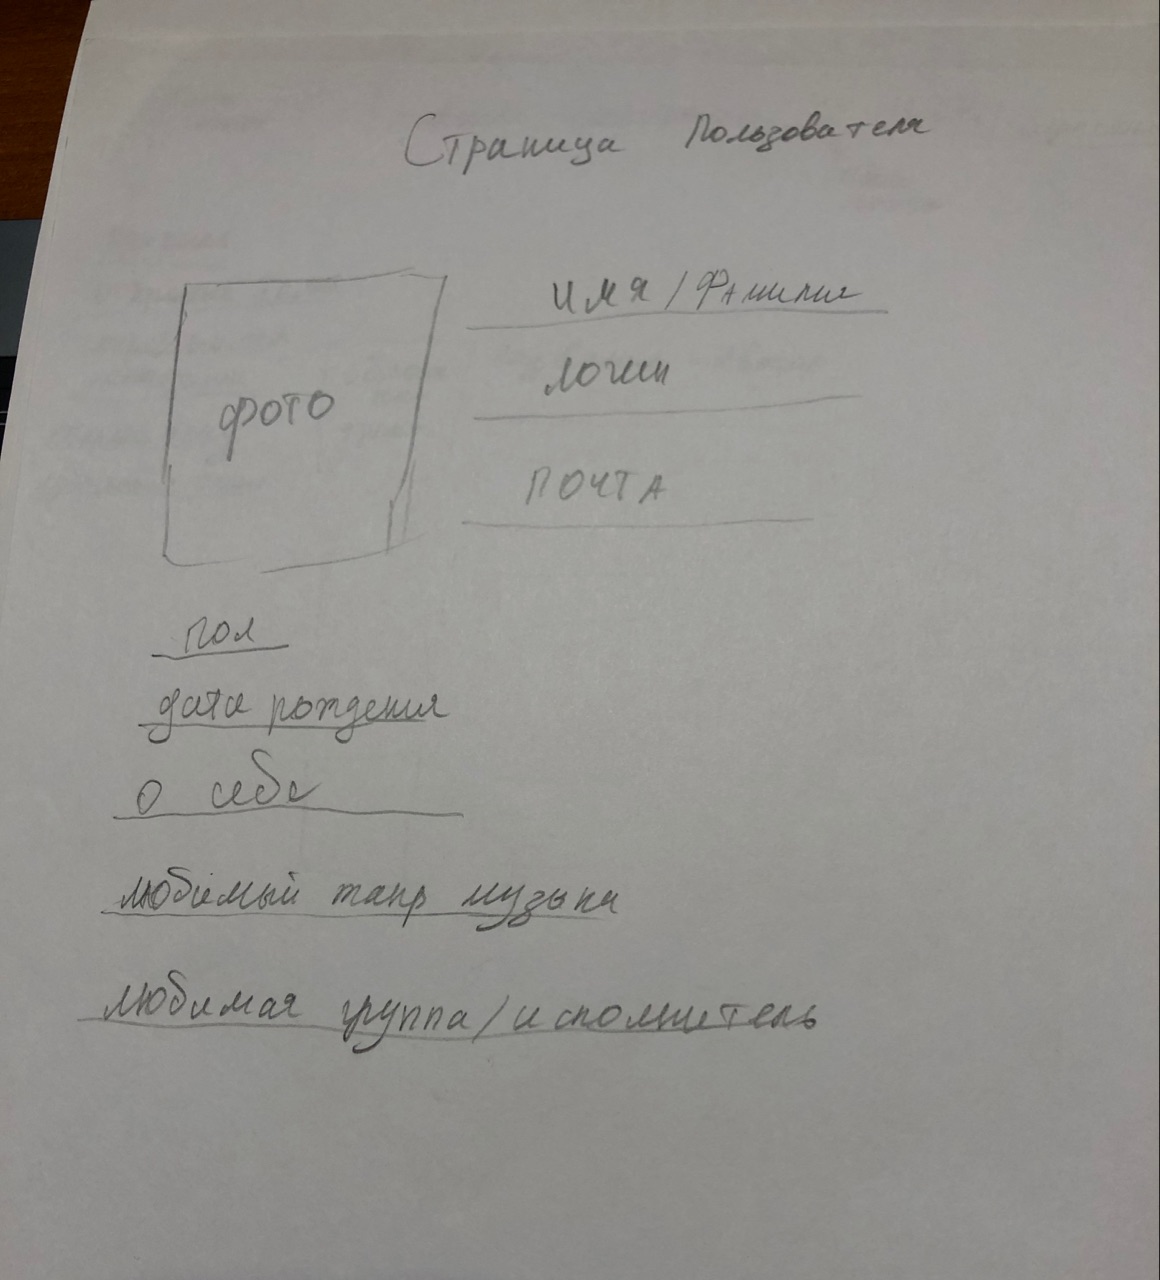 Страница Пользователя
фото
имя / Фамилия
логин
ПОЧТА
Пол
дата рождения
о себе
любимый жанр музыки
любимая группа / исполнитель